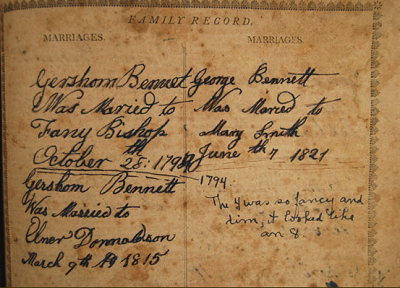 FAMILY RECORD.
MARRIAGES.
Gershom Bennet
Was Maried to
Fany Bishop
October 28th 1794
Gershom Bennett
Was Married to
Elner Donnaldson
March 9th 1815
MARRIAGES.
George Bennett
Was Maried to
Mary Smith
June th 7 1821
1794.
The 4 was so fancy and
dim, it looked like
an 8.